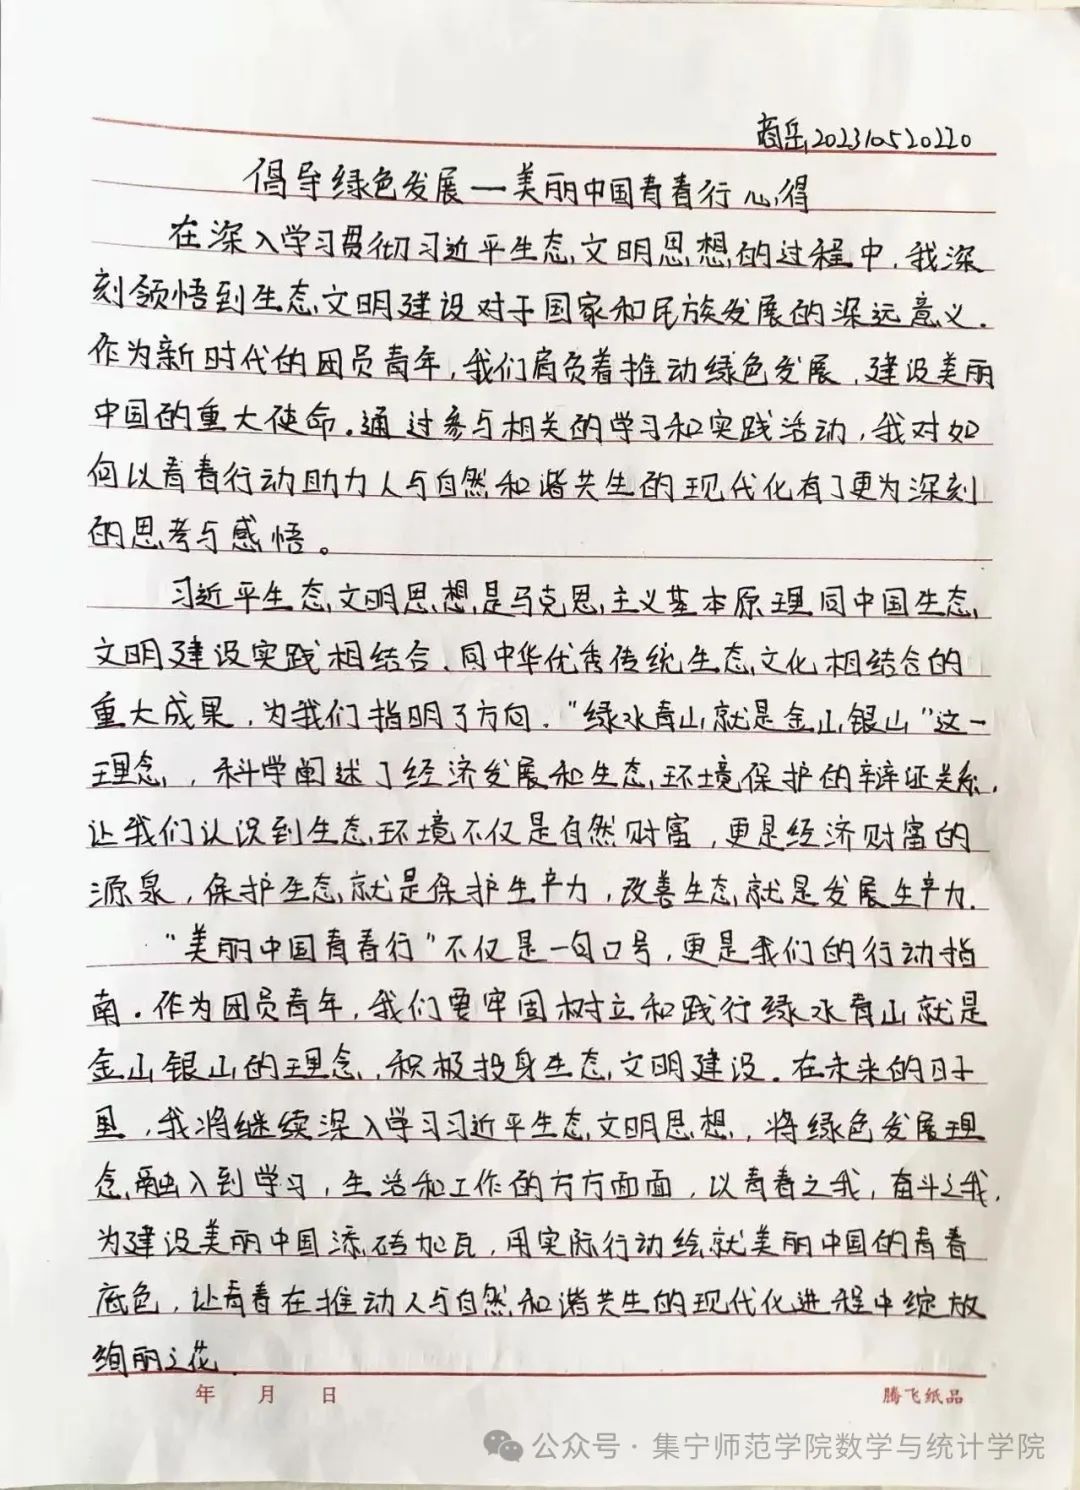 商岳202310520220
倡导绿色发展一美丽中国青春行心得
在深入学习贯彻习近平生态文明思想的过程中,我深
刻领悟到生态文明建设对于国家和民族发展的深远意义.
作为新时代的团员青年,我们肩负着推动绿色发展,建设美丽
中国的重大使命.通过参与相关的学习和实践活动,我对如
何以青春行动助力人与自然和谐共生的现代化有了更为深刻
的思考与感悟。
习近平生态文明思想,是马克思主义基本原理同中国生态
文明建设实践相结合、同中华优秀传统生态文化相结合的
重大成果,为我们指明了方向."绿水青山就是金山银山"这一
理念,科学阐述了经济发展和生态环境保护的辩证关系,
让我们认识到生态环境不仅是自然财富,更是经济财富的
源泉,保护生态就是保护生产力,改善生态就是发展生产力.
"美丽中国青春行"不仅是一句口号,更是我们的行动指
南.作为团员青年,我们要牢固树立和践行绿水青山就是
金山银山的理念,积极投身生态文明建设.在未来的日子
里,我将继续深入学习习近平生态文明思想,将绿色发展理
念融入到学习,生活和工作的方方面面,以青春之我,奋斗之我,
为建设美丽中国添砖加瓦,用实际行动绘就美丽中国的青春
底色,让青春在推动人与自然和谐共生的现代化进程中绽放
绚丽之花.
年 月 日 腾飞纸品
公众号·集宁师范学院数学与统计学院